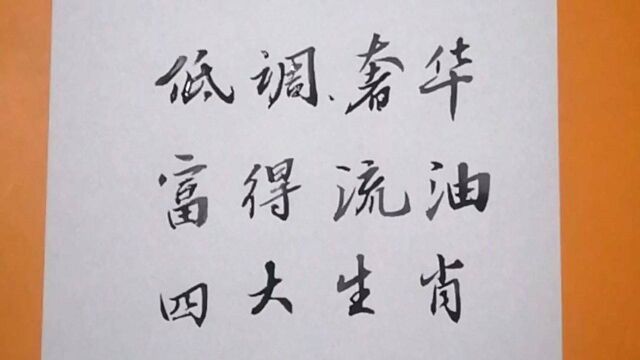 低调、奢华
富得流油
四大生肖